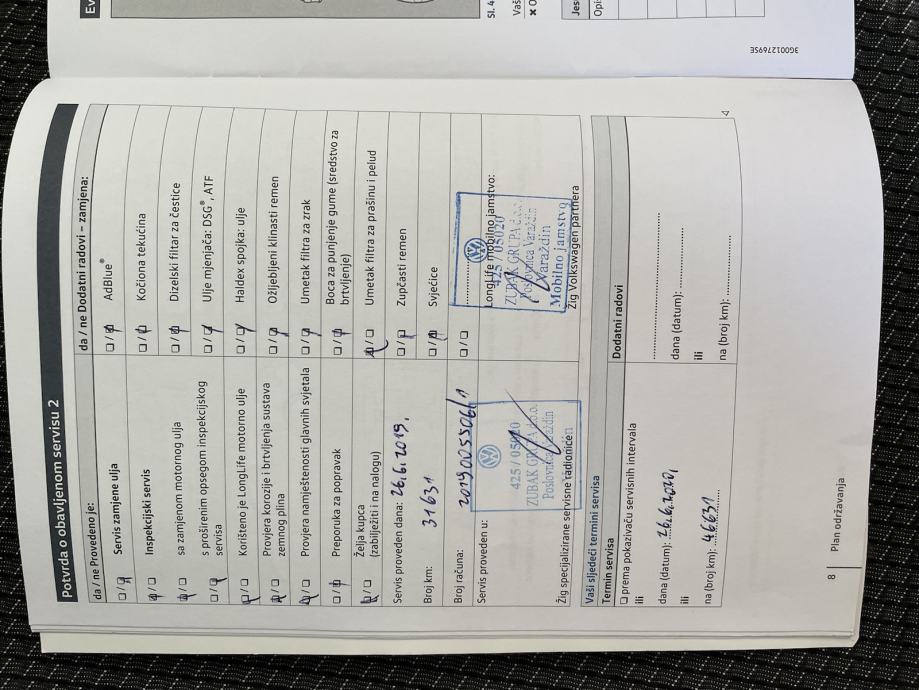 Potvrda o obavljenom servisu 2
da / ne Provedeno je:
☐ / ☐ Servis zamjene ulja
☐ / ☐ Inspekcijski servis
☐ / ☐ sa zamjenom motornog ulja
☐ / ☐ s proširenim opsegom inspekcijskog
servisa
☐ / ☐ Korišteno je LongLife motorno ulje
☐ / ☐ Provjera korozije i brtvljenja sustava
zemnog plina
☐ / ☐ Provjera namještenosti glavnih svjetala
☐ / ☐ Preporuka za popravak
☐ / ☐ Želja kupca
(zabilježiti i na nalogu)
Servis proveden dana: 26.6.2019.
Broj km: 31631
Broj računa: 2019005506/1
Servis proveden u:
425 / 05020
ZUBAK GRUPA d.o.o.
Poslovnica Varaždin
Žig specijalizirane servisne radionice
da / ne Dodatni radovi – zamjena:
☐ / ☐ AdBlue®
☐ / ☐ Kočiona tekućina
☐ / ☐ Dizelski filtar za čestice
☐ / ☐ Ulje mjenjača: DSG®, ATF
☐ / ☐ Haldex spojka: ulje
☐ / ☐ Ožljebljeni klinasti remen
☐ / ☐ Umetak filtra za zrak
☐ / ☐ Boca za punjenje gume (sredstvo za
brtvljenje)
☐ / ☐ Umetak filtra za prašinu i pelud
☐ / ☐ Zupčasti remen
☐ / ☐ Svjećice
☐ / ☐
LongLife mobilno jamstvo:
425 / 05020
ZUBAK GRUPA d.o.o.
Poslovnica Varaždin
Varaždin
Mobilno jamstvo
Žig Volkswagen partnera
Vaši sljedeći termini servisa
Termin servisa
☐ prema pokazivaču servisnih intervala
ili
dana (datum): 26.6.2020.
ili
na (broj km): 46631
Dodatni radovi
dana (datum):
ili
na (broj km):
8 | Plan održavanja
Ev
Sl. 4
Vaš
Jes
Opi
3G0012769SE